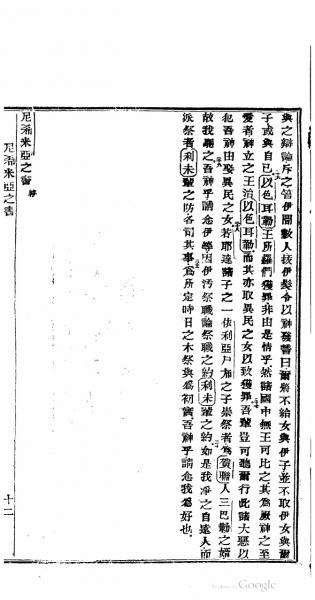 與之辯論斥之笞伊間數人拔伊髮令以神發誓曰爾將不給女與伊子並不取伊女與爾
子或與自己以色耳勒王所羅們獲罪非由是情乎然諸國中無王可比之其爲厥神之至
愛者神立之王治以色耳勒而其亦取異民之女以致獲罪吾輩豈可聽爾行此諸大惡以
犯吾神由娶異民之女若耶達諸子之一依利亞之子崇祭者爲賀聯人三巴勒之婿
故我驅之吾神乎請念伊等因伊污祭職論祭職之約利未輩之約如是我淨之自遠人而
派祭者利未輩之防各司其事爲所定時日之木祭與爲初實吾神乎請念我爲好也。
尼希米亞之書 終
尼希米亞之書
十二
Google